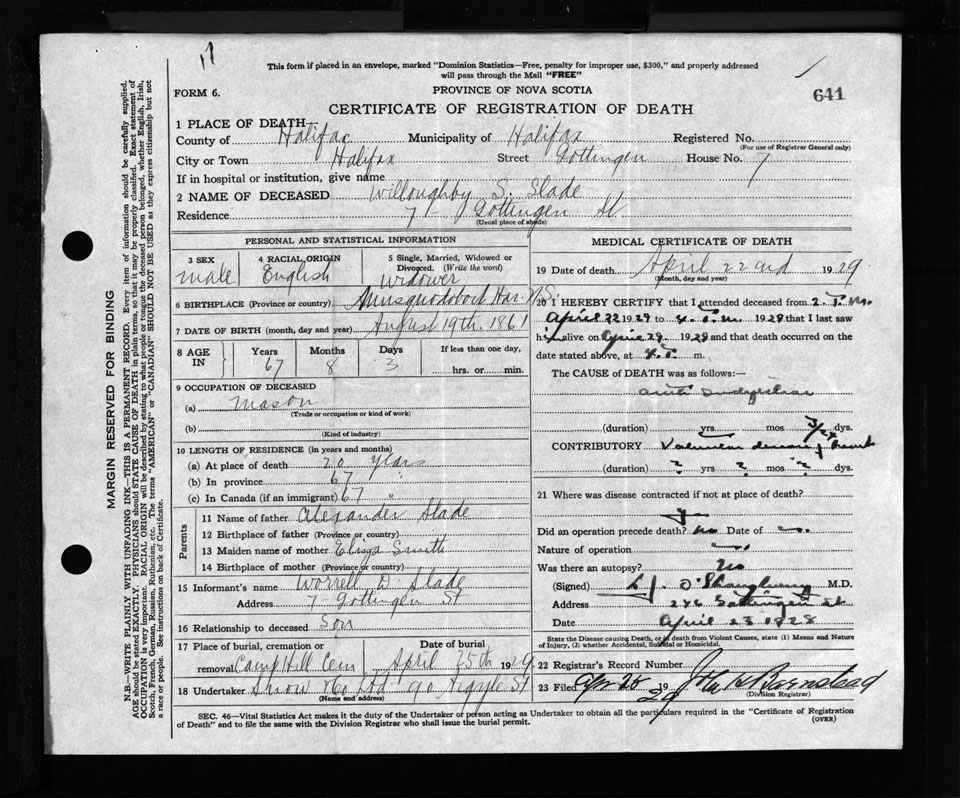 17
This form if placed in an envelope, marked "Dominion Statistics—Free, penalty for improper use, $300," and properly addressed
will pass through the Mail "FREE"
FORM 6.
PROVINCE OF NOVA SCOTIA
641
CERTIFICATE OF REGISTRATION OF DEATH
1 PLACE OF DEATH
County of Halifax Municipality of Halifax Registered No.
(For use of Registrar General only)
City or Town Halifax Street Gottingen House No. 7
If in hospital or institution, give name
2 NAME OF DECEASED Willoughby S. Slade
Residence 7 Gottingen St
(Usual place of abode)
MARGIN RESERVED FOR BINDING
N.B.—WRITE PLAINLY WITH UNFADING INK—THIS IS A PERMANENT RECORD. Every item of information should be carefully supplied.
AGE should be stated EXACTLY. PHYSICIANS should STATE CAUSE OF DEATH in plain terms, so that it may be properly classified. Exact statement of
OCCUPATION is very important. RACIAL ORIGIN will be described by stating to what people or race the deceased person belonged, whether English, Irish,
Scotch, French, German, Russian, Ruthenian, etc. The terms "AMERICAN" or "CANADIAN" SHOULD NOT BE USED as they express citizenship but not
a race or people. See instructions on back of Certificate.
PERSONAL AND STATISTICAL INFORMATION
3 SEX
male
4 RACIAL ORIGIN
English
5 Single, Married, Widowed or
Divorced. (Write the word)
widower
6 BIRTHPLACE (Province or country) Musquodoboit Har. N.S.
7 DATE OF BIRTH (month, day and year) August 19th. 1861
8 AGE IN
Years Months Days If less than one day,
67 8 3 hrs. or min.
9 OCCUPATION OF DECEASED
(a) Mason
(Trade or occupation or kind of work)
(b)
(Kind of industry)
10 LENGTH OF RESIDENCE (in years and months)
(a) At place of death 20 years
(b) In province 67 "
(c) In Canada (if an immigrant) 67 "
Parents
11 Name of father Alexander Slade
12 Birthplace of father (Province or country)
13 Maiden name of mother Eliza Smith
14 Birthplace of mother (Province or country)
15 Informant's name Worrell D. Slade
Address 7 Gottingen St
16 Relationship to deceased Son
17 Place of burial, cremation or Date of burial
removal Camp Hill Cem. April 25th 1929
18 Undertaker Snow & Co Ltd 90 Argyle St
(Name and address)
MEDICAL CERTIFICATE OF DEATH
19 Date of death April 22nd 1929
(Month, day and year)
20 I HEREBY CERTIFY that I attended deceased from 2 P.m.
April 22 1929 to 4 P.m. 1929 that I last saw
him alive on April 22 1929 and that death occurred on the
date stated above, at 4 P. m.
The CAUSE of DEATH was as follows:—
acute Indigestion
(duration) yrs mos dys.
CONTRIBUTORY Valvular disease of heart
(duration) ? yrs ? mos ? dys.
21 Where was disease contracted if not at place of death?
Did an operation precede death? no Date of
Nature of operation
Was there an autopsy? No
(Signed) O'Shaughnessy M.D.
Address 246 Gottingen St
Date April 23 1928
State the Disease causing Death, or in death from Violent Causes, state (1) Means and Nature
of Injury, (2) whether Accidental, Suicidal or Homicidal.
22 Registrar's Record Number
23 Filed Apr 25 1929 Barnstead
(Division Registrar)
SEC. 46—Vital Statistics Act makes it the duty of the Undertaker or person acting as Undertaker to obtain all the particulars required in the "Certificate of Registration
of Death" and to file the same with the Division Registrar who shall issue the burial permit.
(OVER)